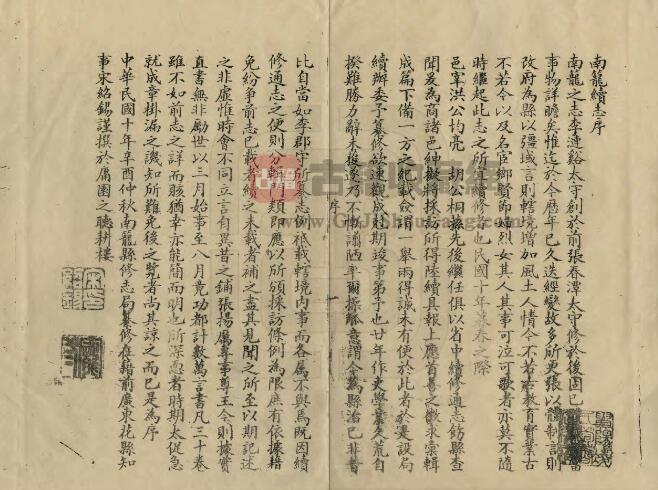 南籠續志序
南籠之志李連谿太守創於前張春潭太守修於後固已
事物詳瞻矣惟迄於今歷年已久迭經變故多所更張以言制則
改府為縣以疆域言則轄境增加風土人情今不若古教育實業古
不若今以及名宦鄉賢節婦烈女其人其事可泣可歌者亦莫不隨
時繼起此志之所宜續修者也民國十年暮春之際
邑宰洪公灼亮 胡公相 先後繼任俱以省中續修通志飭縣查
聞爰為商諸邑紳擬將採訪所得陸續具報上應首善之徵求彙輯
成篇下備一方之紀載僉謂一舉兩得誠未有便於此者於是設局
續辦委予纂修欲速觀成尅期竣事第予也廿年作吏學業久荒自
揆難勝力辭未獲遂乃不慚譾陋率爾操觚意謂今為縣治已非昔
比自當如李郡守所纂志例祗載轄境內事而各屬不與焉既因續
修通志之便則分編門類即應以所頒採訪條例為限庶有依據藉
免紛爭前志已載者續之未載者補之盡其見聞之所至以期記述
之非虛惟時會不同立言自異昔之鋪張揚厲專事尊王今則據實
直書無非勵世以三月始事至八月竟功都計數萬言書凡二十卷
雖不如前志之詳而賅猶幸亦能簡而明也所深慮者時期太促急
就成章掛漏之譏知所難免後之覽者尚其諒之而已是為序
中華民國十年辛酉仲秋南籠縣修志局纂修在籍前廣東花縣知
事宋紹錫謹撰於厲園之聽耕樓
古籍
www.GuJiShuWang.com